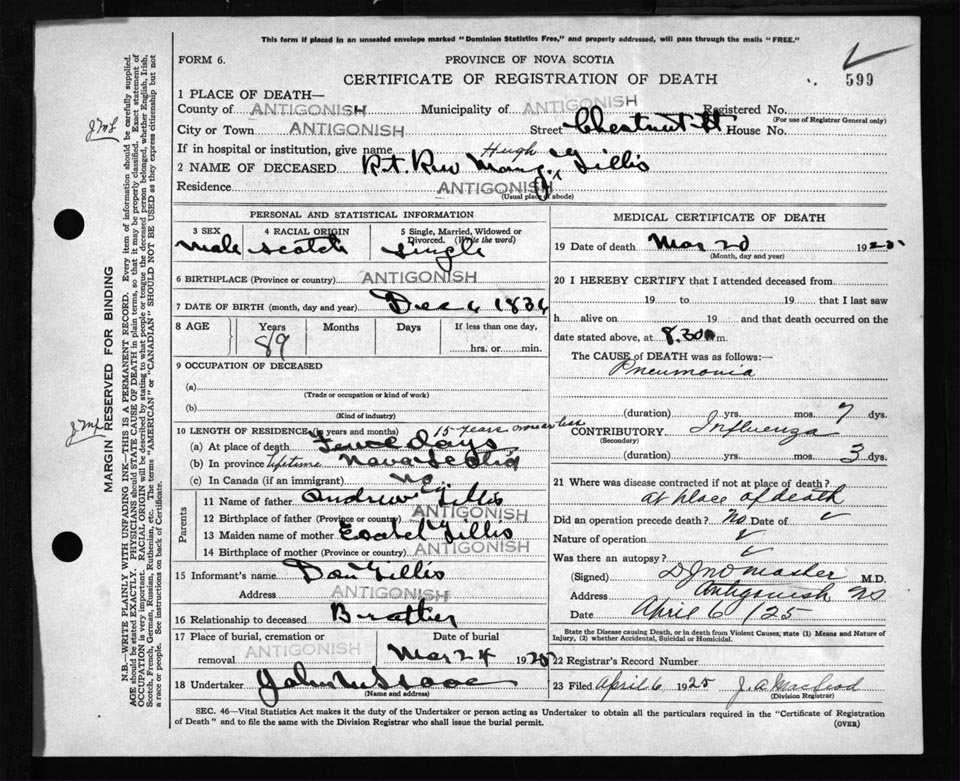 This form if placed in an unsealed envelope marked "Dominion Statistics Free," and properly addressed, will pass through the mails "FREE."
FORM 6.
PROVINCE OF NOVA SCOTIA
CERTIFICATE OF REGISTRATION OF DEATH
599
1 PLACE OF DEATH—
County of ANTIGONISH Municipality of ANTIGONISH Registered No.
(For use of Registrar General only)
City or Town ANTIGONISH Street Chestnut St House No.
If in hospital or institution, give name
Hugh
2 NAME OF DECEASED Rt. Rev Mong. Gillis
Residence ANTIGONISH
(Usual place of abode)
PERSONAL AND STATISTICAL INFORMATION
3 SEX 4 RACIAL ORIGIN 5 Single, Married, Widowed or Divorced. (Write the word)
male scotch single
6 BIRTHPLACE (Province or country) ANTIGONISH
7 DATE OF BIRTH (month, day and year) Dec 6 1836
8 AGE Years Months Days If less than one day,
89 hrs. or min.
9 OCCUPATION OF DECEASED
(a)
(Trade or occupation or kind of work)
(b)
(Kind of industry)
10 LENGTH OF RESIDENCE (in years and months) 15 years more or less
(a) At place of death Few days
(b) In province lifetime Nova Scotia
(c) In Canada (if an immigrant) no
Parents
11 Name of father Andrew Gillis
12 Birthplace of father (Province or country) ANTIGONISH
13 Maiden name of mother Esabel Gillis
14 Birthplace of mother (Province or country) ANTIGONISH
15 Informant's name Dan Gillis
Address ANTIGONISH
16 Relationship to deceased Brother
17 Place of burial, cremation or removal ANTIGONISH Date of burial Mar 24 1925
18 Undertaker John
(Name and address)
MEDICAL CERTIFICATE OF DEATH
19 Date of death Mar 20 1925
(Month, day and year)
20 I HEREBY CERTIFY that I attended deceased from
19 to 19 that I last saw
h alive on 19 and that death occurred on the
date stated above, at 8.30 m.
The CAUSE of DEATH was as follows:—
Pneumonia
(duration) yrs. mos. 7 dys.
CONTRIBUTORY Influenza
(Secondary)
(duration) yrs. mos. 3 dys.
21 Where was disease contracted if not at place of death?
at place of death
Did an operation precede death? No Date of
Nature of operation
Was there an autopsy?
(Signed) M.D.
Address Antigonish NS
Date April 6 /25
State the Disease causing Death, or in death from Violent Causes, state (1) Means and Nature of Injury, (2) whether Accidental, Suicidal or Homicidal.
22 Registrar's Record Number
23 Filed April 6 1925 J. A. MacLeod
(Division Registrar)
SEC. 46—Vital Statistics Act makes it the duty of the Undertaker or person acting as Undertaker to obtain all the particulars required in the "Certificate of Registration
of Death" and to file the same with the Division Registrar who shall issue the burial permit.
(OVER)
MARGIN RESERVED FOR BINDING
N.B.—WRITE PLAINLY WITH UNFADING INK—THIS IS A PERMANENT RECORD. Every item of information should be carefully supplied.
AGE should be stated EXACTLY. PHYSICIANS should STATE CAUSE OF DEATH in plain terms, so that it may be properly classified. Exact statement of
OCCUPATION is very important. RACIAL ORIGIN will be described by stating to what people or tongue the deceased person belonged, whether English, Irish,
Scotch, French, German, Russian, Ruthenian, etc. The terms "AMERICAN" or "CANADIAN" SHOULD NOT BE USED as they express citizenship but not
a race or people. See instructions on back of Certificate.